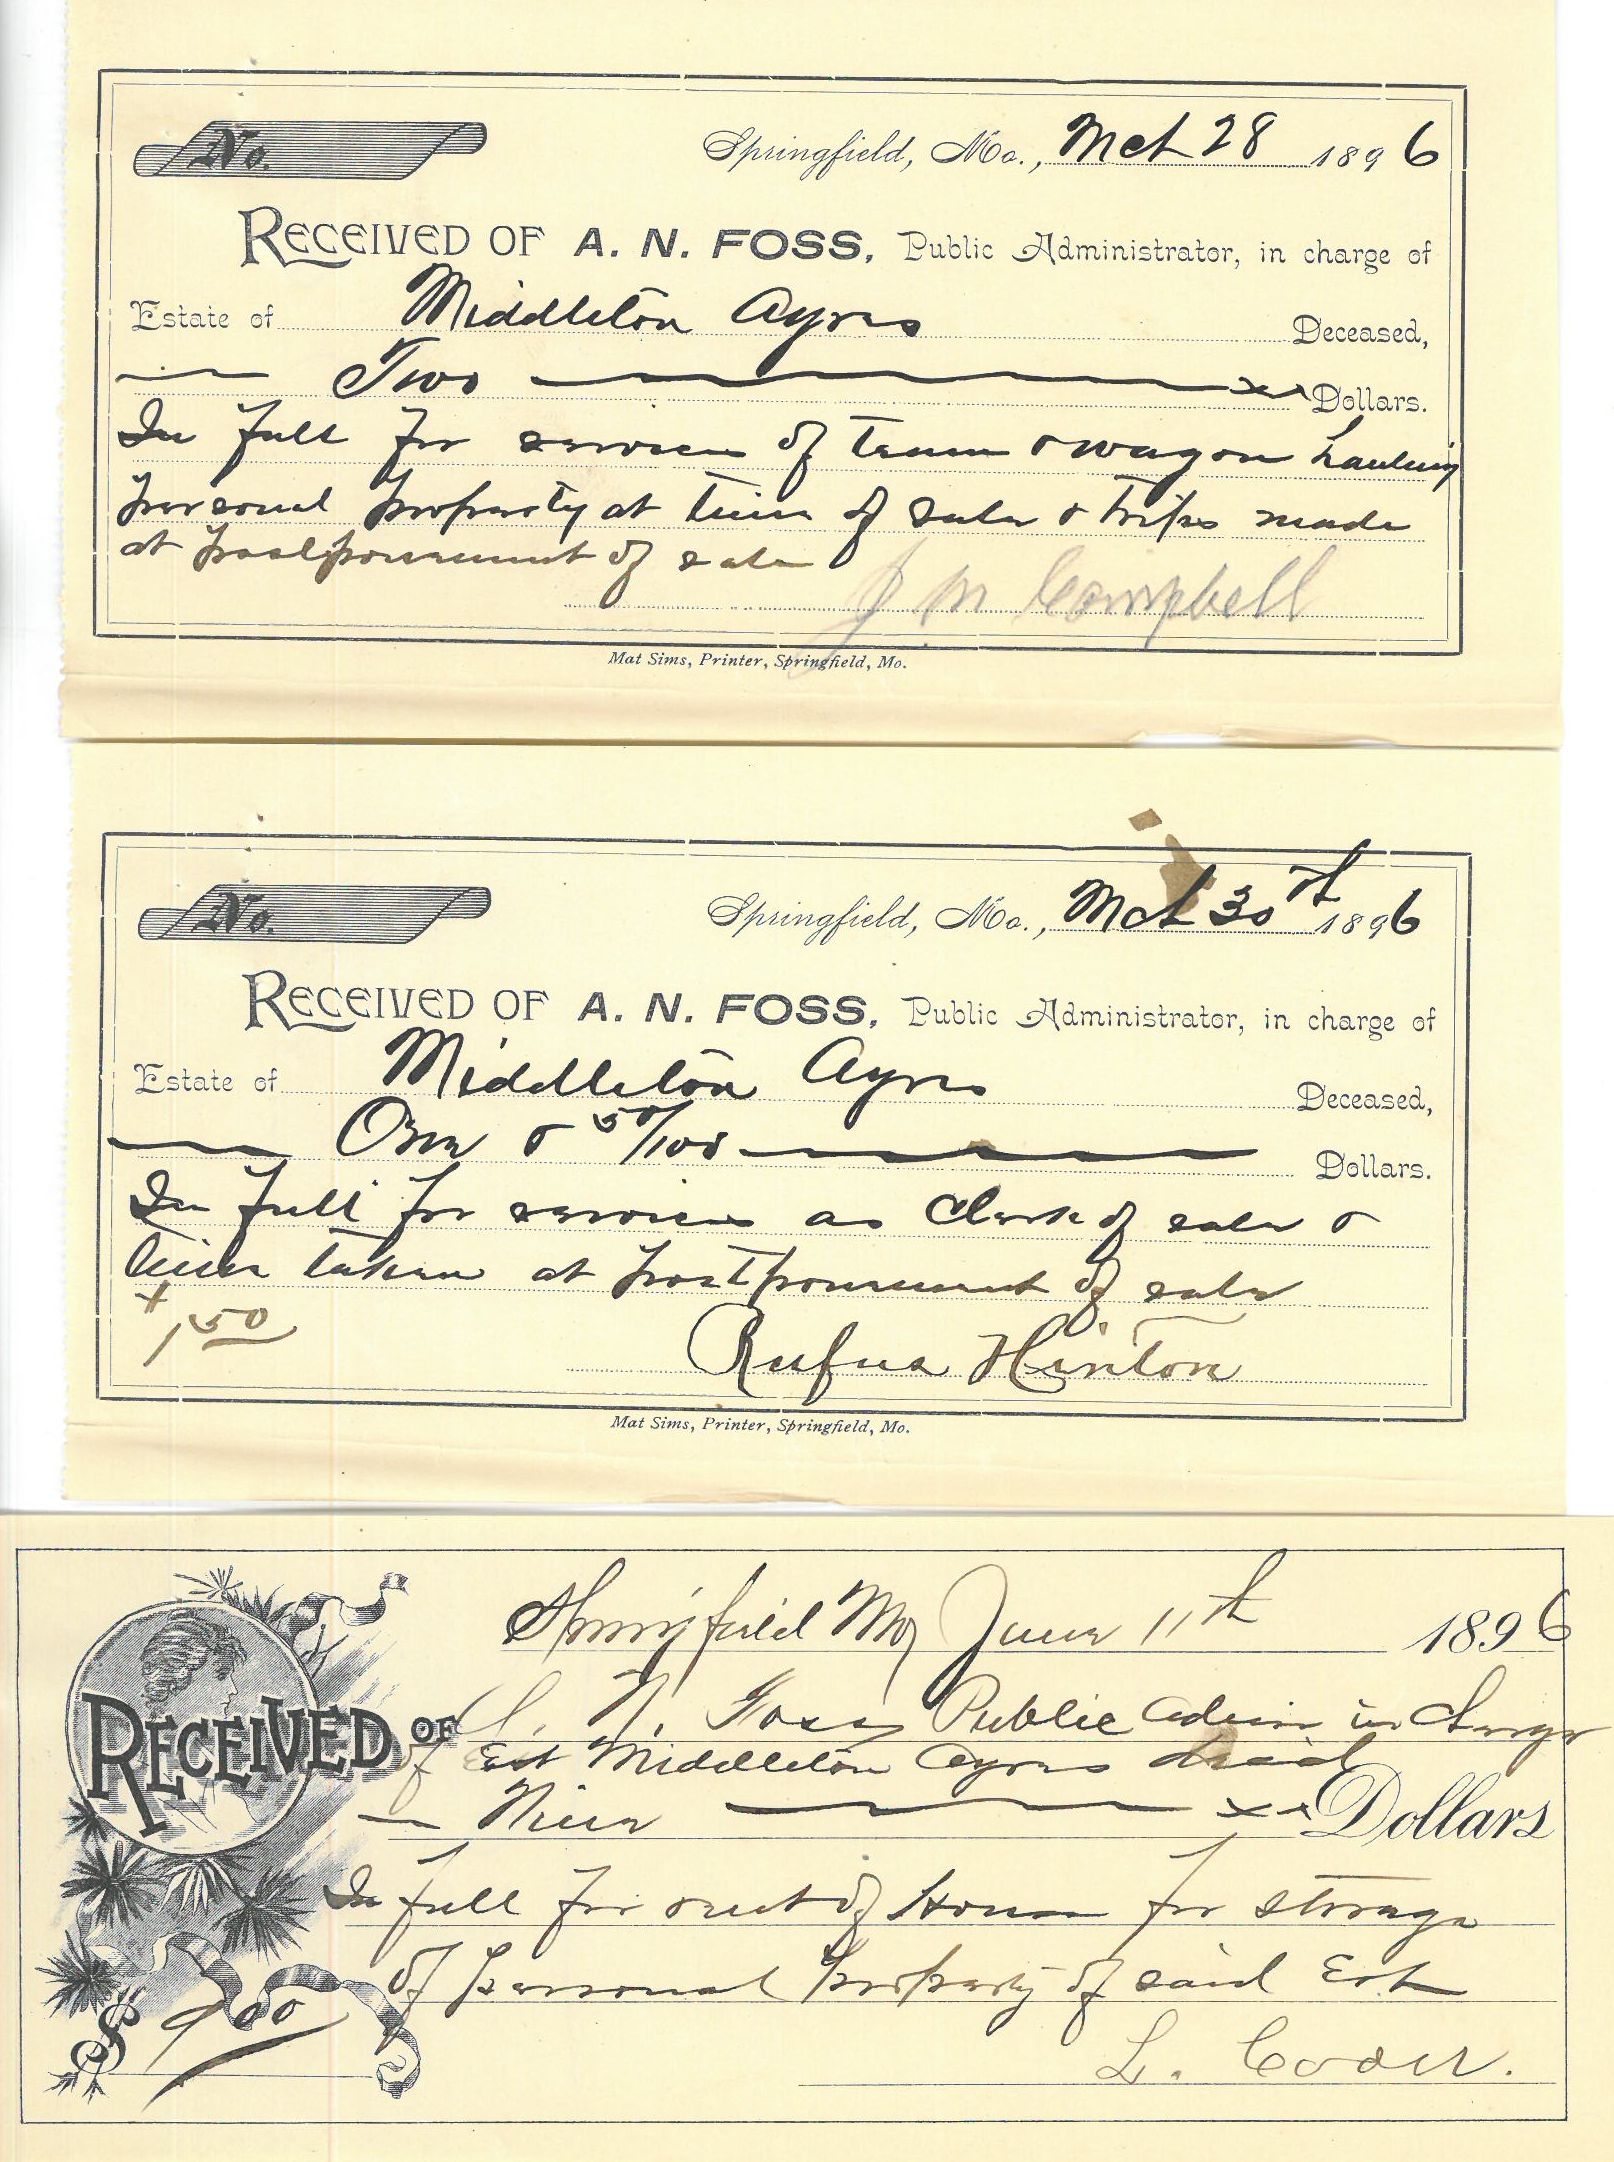 No.
Springfield, Mo., Mch 28 1896
RECEIVED OF A. N. FOSS, Public Administrator, in charge of
Estate of Middleton Ayres Deceased,
Two Dollars.
In full for services of team & wagon hauling
personal property at time of sale & trips made
at postponement of sale
J M Campbell
Mat Sims, Printer, Springfield, Mo.
No.
Springfield, Mo., Mch 30th 1896
RECEIVED OF A. N. FOSS, Public Administrator, in charge of
Estate of Middleton Ayres Deceased,
One & 50/100 Dollars.
In full for services as Clerk of sale &
time taken at postponement of sale
$1.50
Rufus Hinton
Mat Sims, Printer, Springfield, Mo.
Springfield Mo June 11th 1896
RECEIVED OF A. N. Foss Public Admin in Charge
of Est Middleton Ayres decd
Nine Dollars
In full for rent of House for storage
of personal property of said Est
$ 9.00
L. Coon.